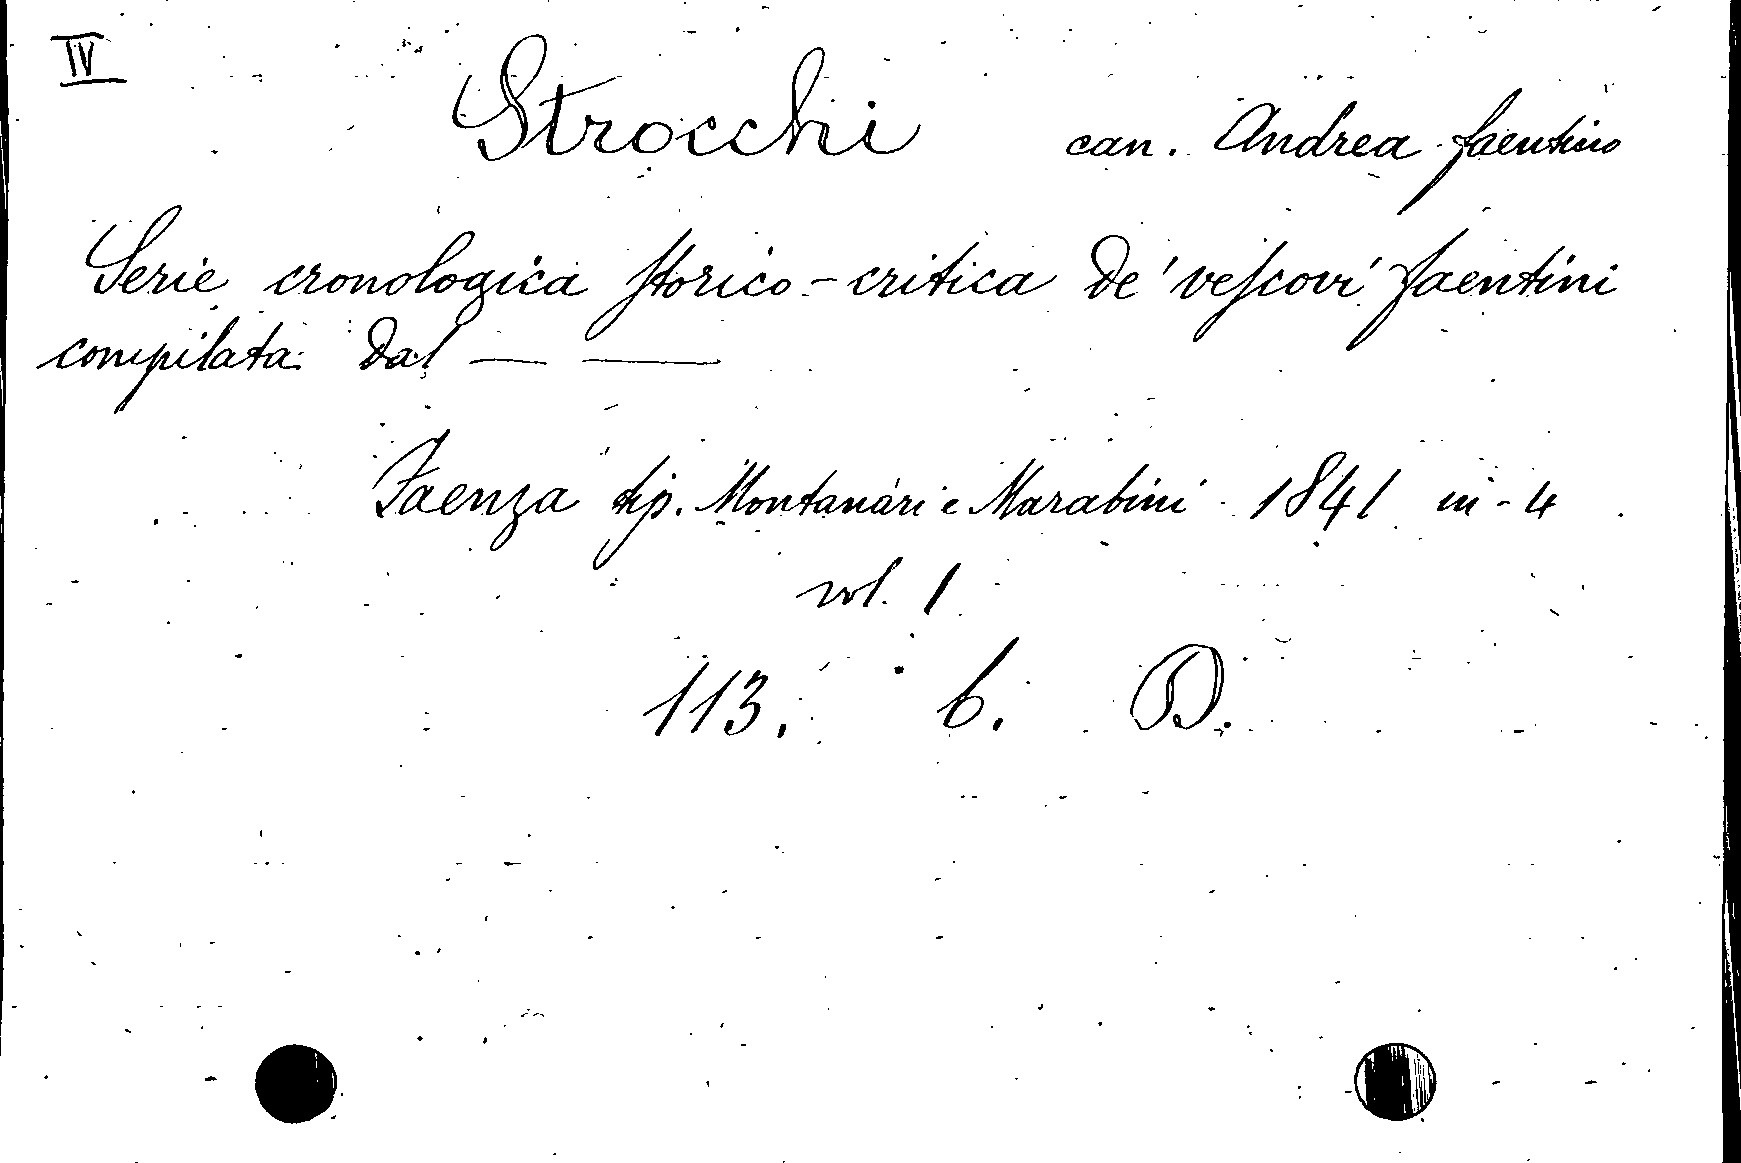 IV
Strocchi can. Andrea faentino
Serie cronologica storico-critica de' vescovi faentini
compilata dal — —
Faenza tip. Montanari e Marabini 1841 in-4
vol. 1
113. 6. D.